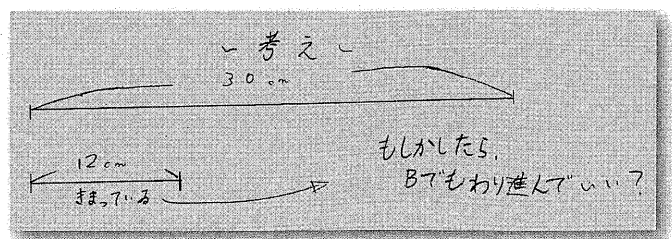 ～考え～
30cm
12cm
きまっている
もしかしたら、
Bでもわり進んでいい？